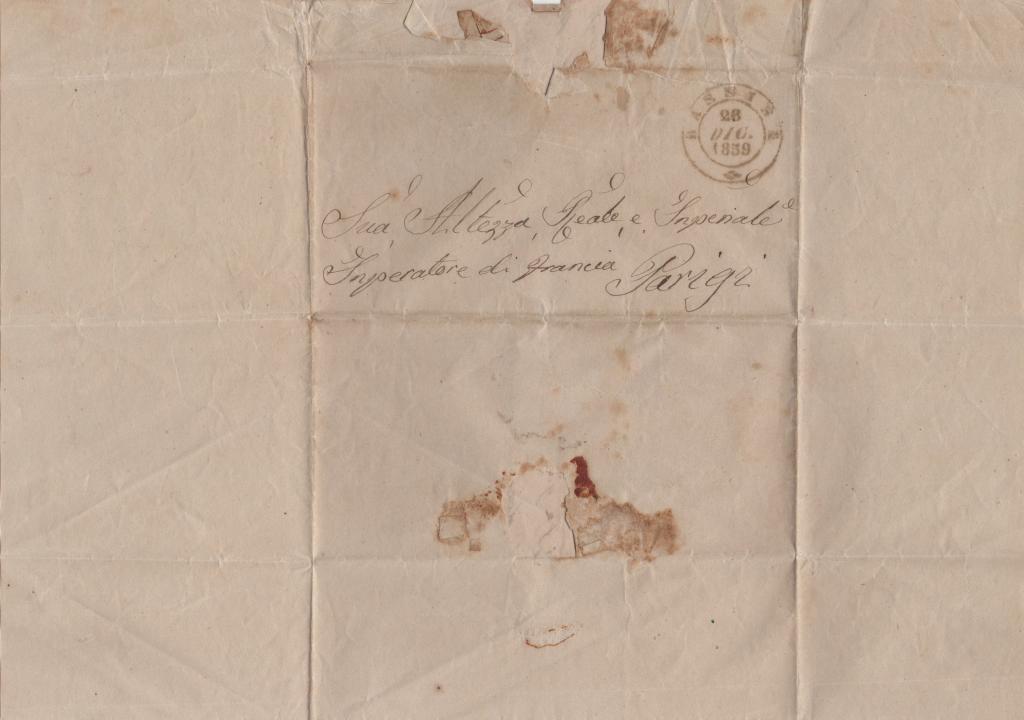 BASSINE
26
DIC.
1859
Sua Altezza Reale, e Inperiale
Inperatore di francia Parigi